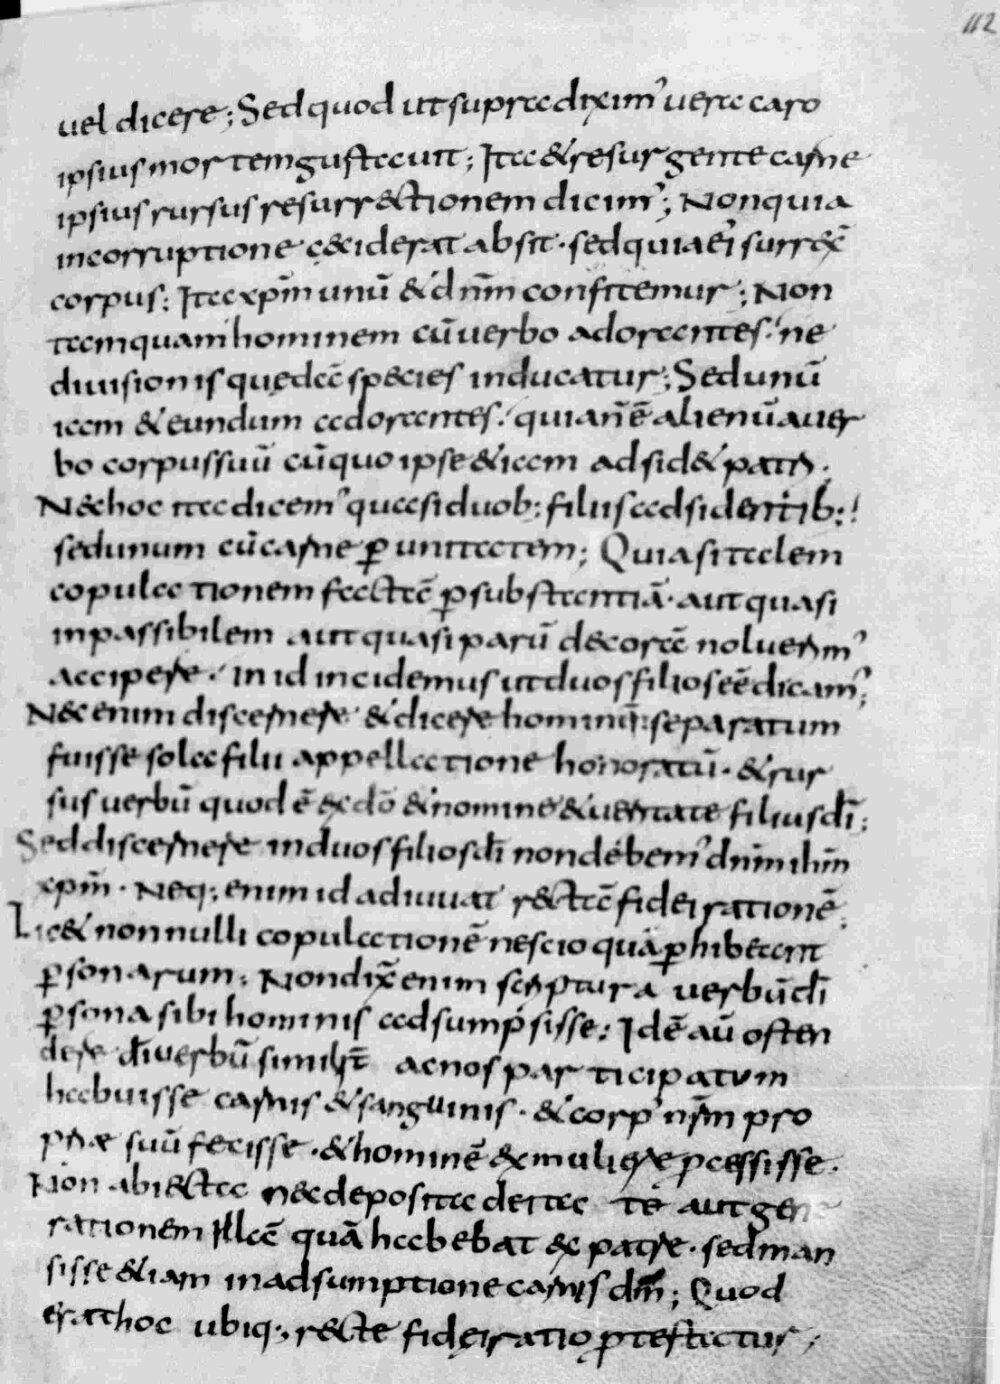 112
uel dicere; Sed quod ut supra diximʼ uere caro
ipsius mortem gustauit; Ita & resurgente carne
ipsius rursus resurrectionem dicimʼ; Non quia
incorruptione ceciderat absit· sed quia eiʼ surrex̄
corpus; Ita xpm̄ unū & dnm̄ confitemur; Non
tamquam hominem cū uerbo adorantes· ne
diuisionis quędā species inducatur; Sed unū
iam & eundum adorantes· quia n̄ ē alienū a uer
bo corpus suū cū quo ipse & iam adsid& patri·
Nec hoc ita dicemʼ quasi duob; filiis adsidentib;
sed unum cū carne ꝑ unitatem; Quia si talem
copulationem factā ꝑ substantiā· aut quasi
inpassibilem aut quasi parū decorā noluerimʼ
accipere· in id incidemus ut duos filios eē dicamʼ;
Nec enim discernere & dicere hominē separatum
fuisse sola filii appellatione honoratū· & rur
sus uerbū quod ē ex dō & nomine & ueritate filius dī;
Sed discernere in duos filios dī non debemʼ dnm̄ ihm̄
xpm̄· Neq; enim id adiuuat rectā fidei rationē;
Lic& non nulli copulationē nescio quā ꝑhibeant
ꝑsonarum; Non dix̄ enim scriptura uerbū dī
ꝑsona sibi hominis adsumpsisse; Idē aū osten
dere dī uerbū similit̄ ac nos participatum
habuisse carnis & sanguinis· & corpʼ nr̄m pro
priæ suū fecisse· & hominē ex muliere ꝓcessisse·
Non abiecta nec deposita deitate aut gene
rationem illā quā habebat ex patre· sed man
sisse &iam in adsumptione carnis dm̄; Quod
erat hoc ubiq; recte fidei ratio ꝓtestatur;